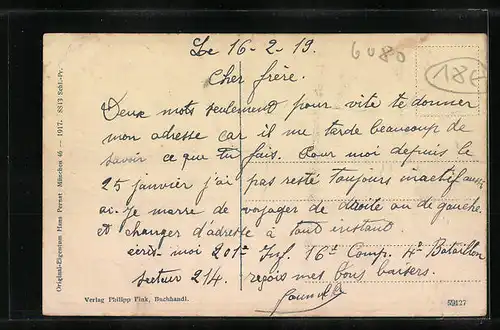 Le 16-2-19.
6080
18€
Cher frère.
Deux mots seulement pour vite te donner
mon adresse car il me tarde beaucoup de
savoir ce que tu fais. Pour moi depuis le
25 janvier j'ai pas resté toujours inactif aussi
ai-je marre de voyager de droite ou de gauche
et changer d'adresse à tout instant
écris-moi 201e Inf. 16e Comp. 4e Bataillon
secteur 214. reçois mes bons baisers.
Original-Eigentum Hans Pernat München 46 — 1917. 8813 Schl.-Pr.
Verlag Philipp Fink, Buchhandl.
59127